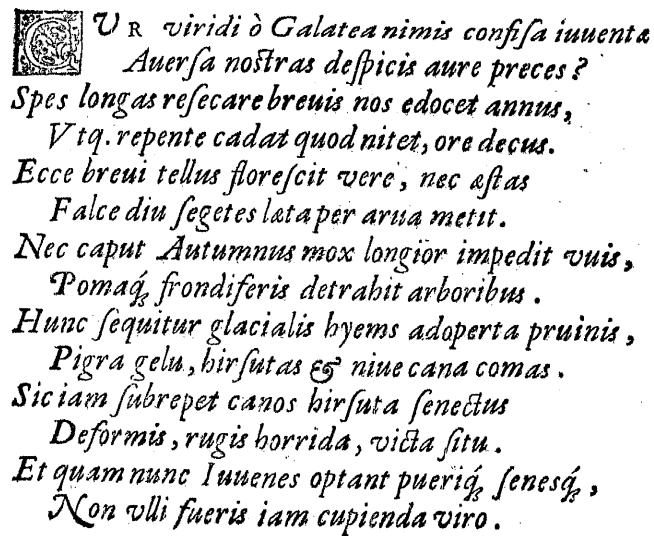 CUR viridi ò Galatea nimis confiſa iuuentæ
Auerſa noſtras deſpicis aure preces?
Spes longas reſecare breuis nos edocet annus,
Vtq. repente cadat quod nitet, ore decus.
Ecce breui tellus floreſcit vere, nec æſtas
Falce diu ſegetes læta per arua metit.
Nec caput Autumnus mox longior impedit vuis,
Pomaq́; frondiferis detrahit arboribus.
Hunc ſequitur glacialis hyems adoperta pruinis,
Pigra gelu, hirſutas & niue cana comas.
Sic iam ſubrepet canos hirſuta ſenectus
Deformis, rugis horrida, victa ſitu.
Et quam nunc Iuuenes optant pueriq́; ſenesq́;,
Non vlli fueris iam cupienda viro.